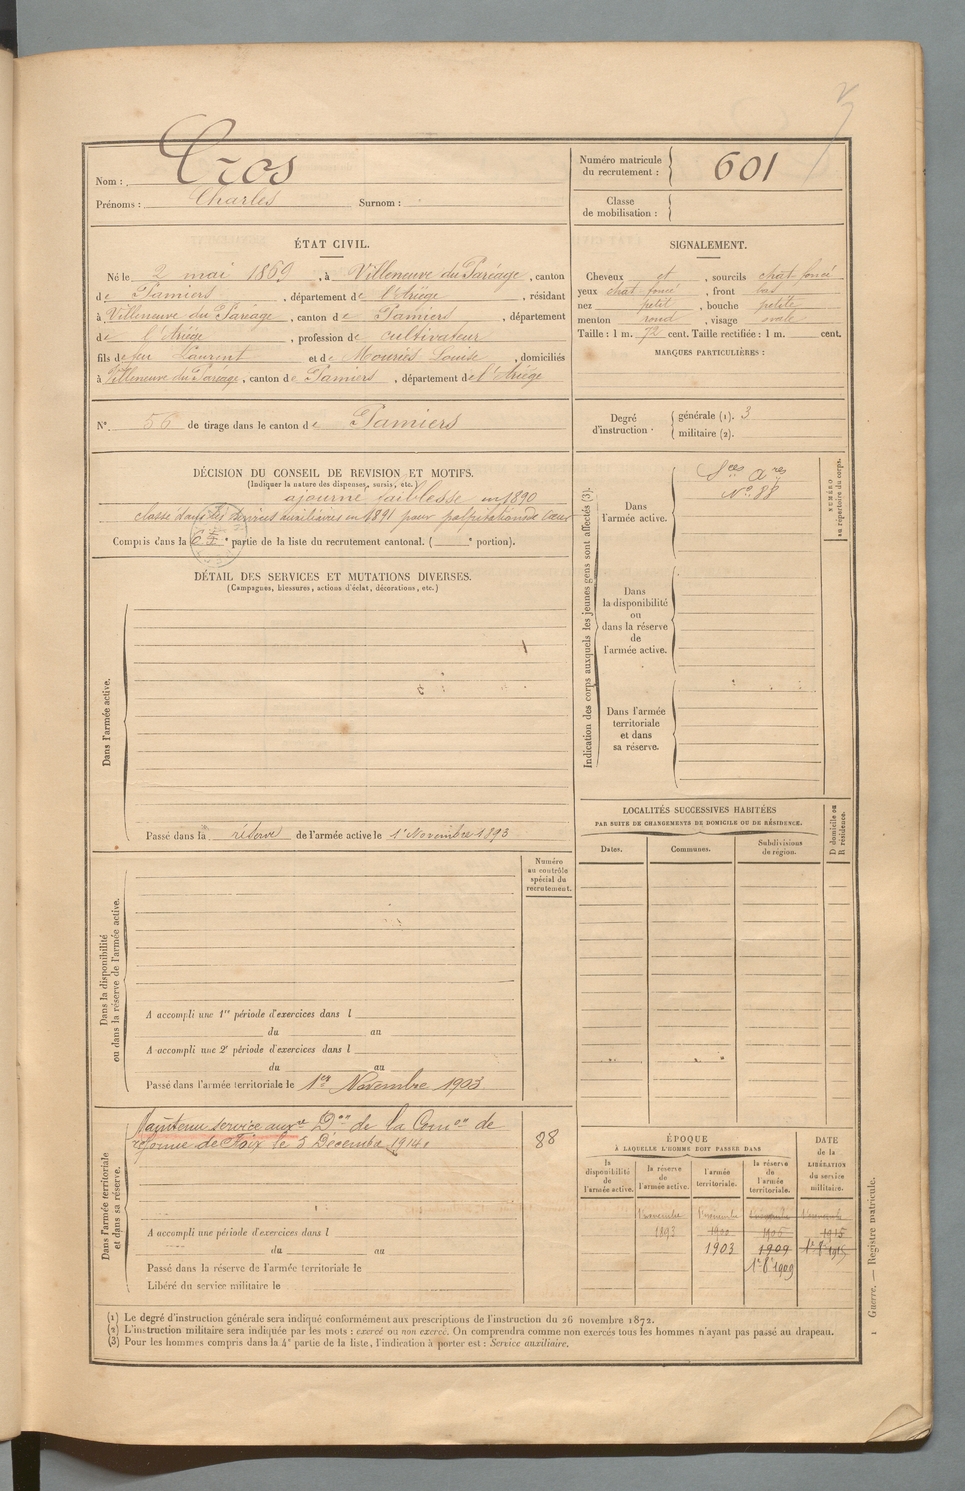 Nom : Cros
Prénoms : Charles Surnom :
Numéro matricule du recrutement : 601
Classe de mobilisation :
ÉTAT CIVIL.
Né le 2 mai 1869, à Villeneuve du Paréage, canton
de Pamiers, département de l'Ariège, résidant
à Villeneuve du Paréage, canton de Pamiers, département
de l'Ariège, profession de cultivateur
fils de feu Laurent et de Mouriès Louise, domiciliés
à Villeneuve du Paréage, canton de Pamiers, département de l'Ariège
N°. 56 de tirage dans le canton de Pamiers
SIGNALEMENT.
Cheveux et, sourcils chat. foncé
yeux chat. foncé, front bas
nez petit, bouche petite
menton rond, visage ovale
Taille : 1 m. 72 cent. Taille rectifiée : 1 m. cent.
MARQUES PARTICULIÈRES :
Degré d'instruction.
générale (1). 3
militaire (2).
DÉCISION DU CONSEIL DE REVISION ET MOTIFS.
(Indiquer la nature des dispenses, sursis, etc.)
ajourné faiblesse en 1890
classé dans les services auxiliaires en 1891 pour palpitations de cœur
Compris dans la 6e partie de la liste du recrutement cantonal. ( e portion).
DÉTAIL DES SERVICES ET MUTATIONS DIVERSES.
(Campagnes, blessures, actions d'éclat, décorations, etc.)
Dans l'armée active.
Passé dans la réserve de l'armée active le 1er Novembre 1893
Indication des corps auxquels les jeunes gens sont affectés (3).
Dans l'armée active.
Sces Ares
N° 88
Dans la disponibilité ou dans la réserve de l'armée active.
Dans l'armée territoriale et dans sa réserve.
NUMÉRO au répertoire du corps.
LOCALITÉS SUCCESSIVES HABITÉES
PAR SUITE DE CHANGEMENTS DE DOMICILE OU DE RÉSIDENCE.
Dates. Communes. Subdivisions de région.
D domicile ou R résidence.
Numéro au contrôle spécial du recrutement.
Dans la disponibilité ou dans la réserve de l'armée active.
A accompli une 1re période d'exercices dans l
du au
A accompli une 2e période d'exercices dans l
du au
Passé dans l'armée territoriale le 1er Novembre 1903
Dans l'armée territoriale et dans sa réserve.
Maintenu service auxre Don de la Comon de
réforme de Foix le 5 Décembre 1914.
88
A accompli une période d'exercices dans l
du au
Passé dans la réserve de l'armée territoriale le
Libéré du service militaire le
ÉPOQUE
À LAQUELLE L'HOMME DOIT PASSER DANS
la disponibilité de l'armée active.
la réserve de l'armée active.
l'armée territoriale.
la réserve de l'armée territoriale.
DATE de la LIBÉRATION du service militaire.
1893 1903 1909 1915
1er 8bre 1909
(1) Le degré d'instruction générale sera indiqué conformément aux prescriptions de l'instruction du 26 novembre 1872.
(2) L'instruction militaire sera indiquée par les mots : exercé ou non exercé. On comprendra comme non exercés tous les hommes n'ayant pas passé au drapeau.
(3) Pour les hommes compris dans la 4e partie de la liste, l'indication à porter est : Service auxiliaire.
1 Guerre. — Registre matricule.